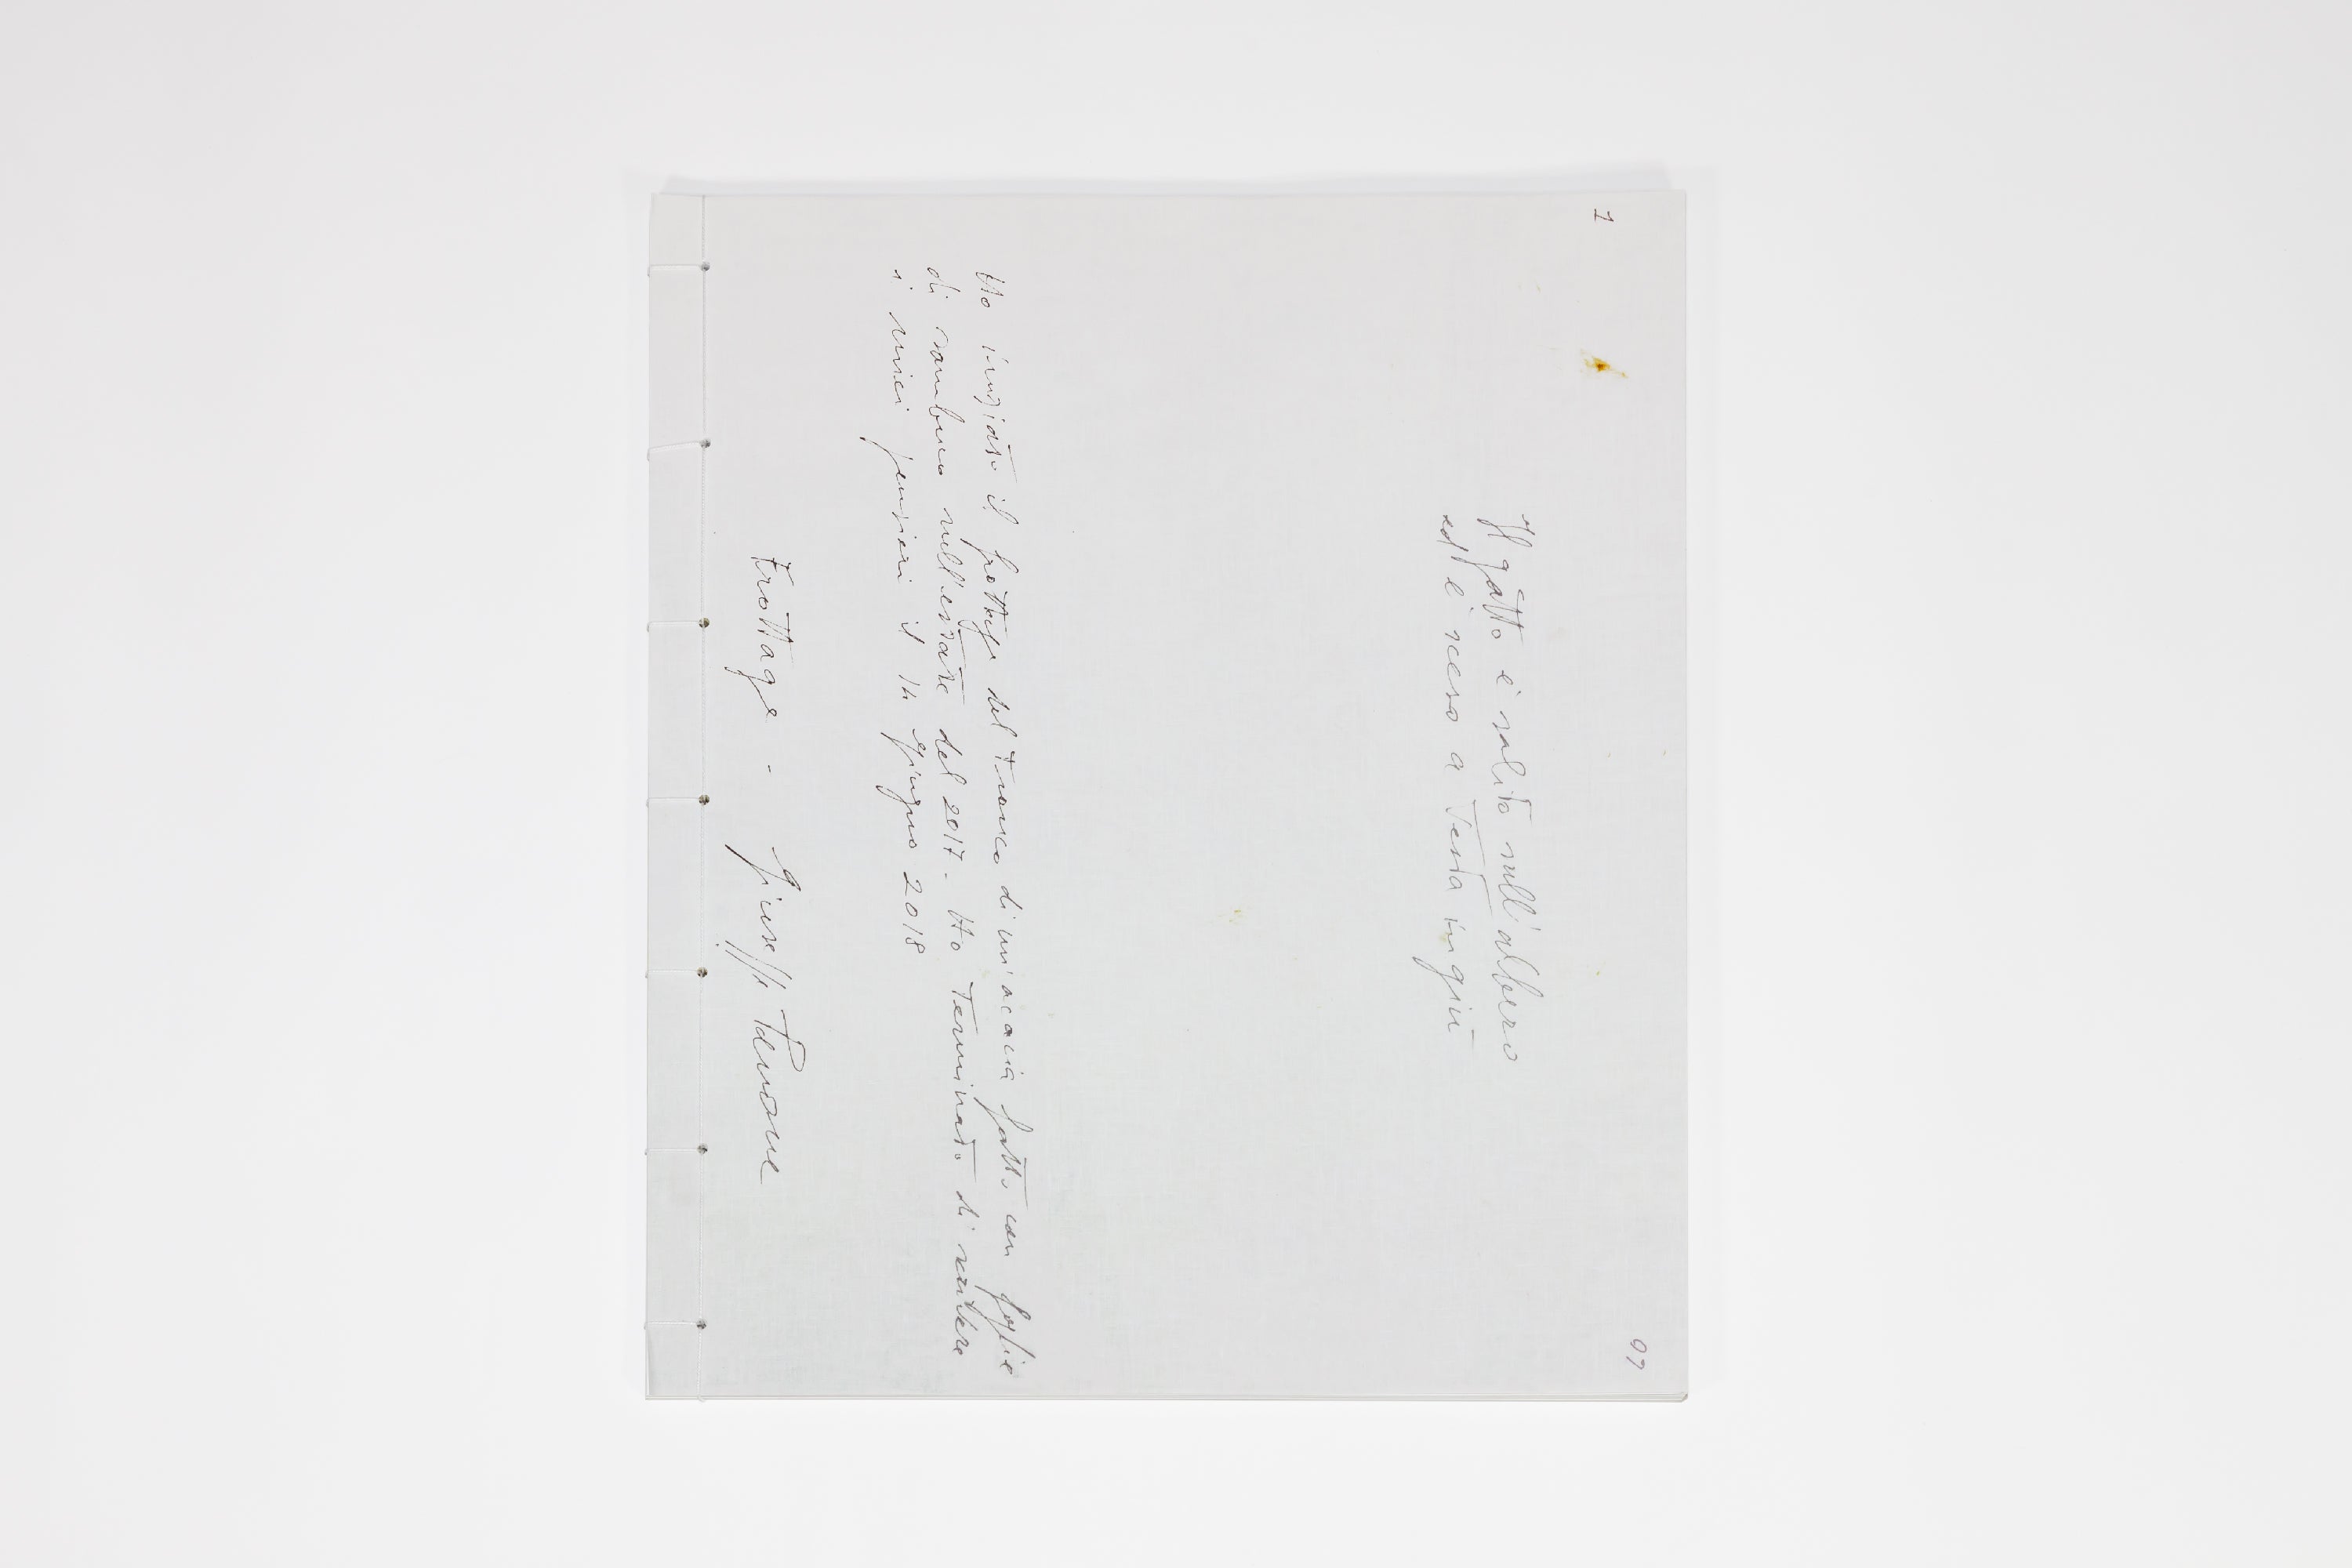 1
07
Il gatto è salito sull'albero
ed è sceso a testa in giù
Ho iniziato il frottage del tronco di un'acacia fatto con foglie
di sambuco nell'estate del 2017 - Ho terminato di scrivere
i miei pensieri il 14 giugno 2018
Frottage - Giuseppe Penone